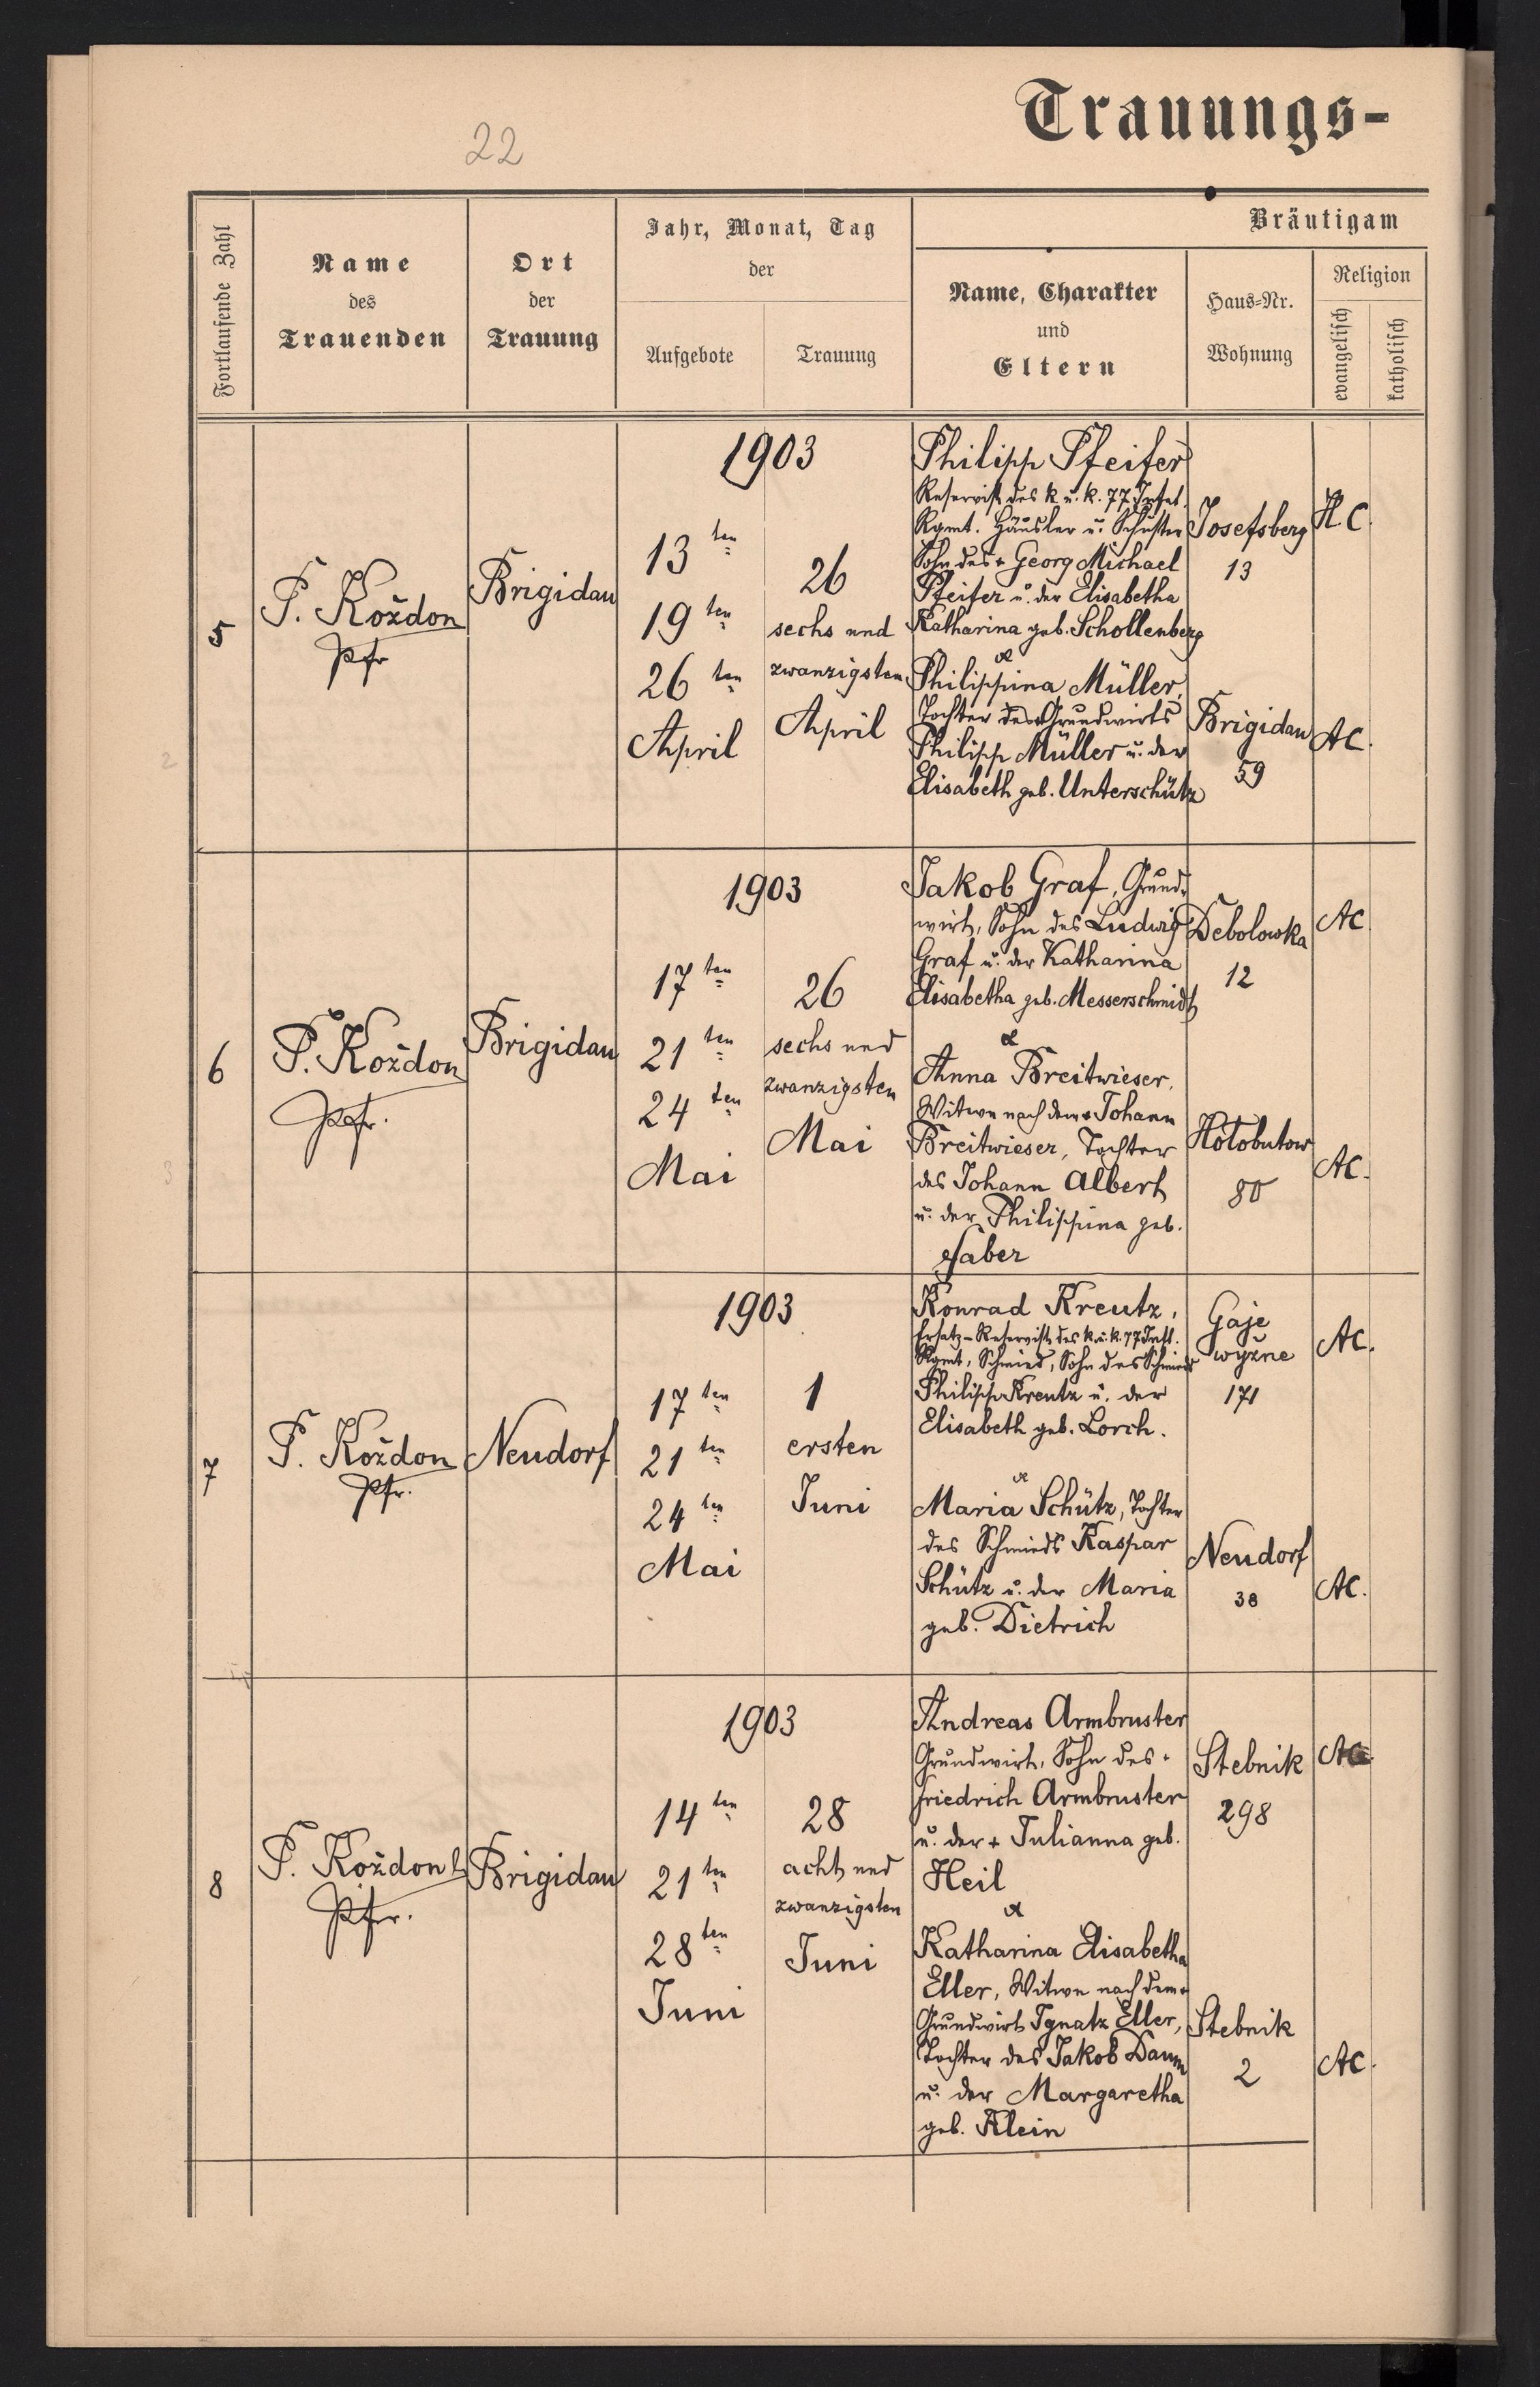 22
Trauungs-
Fortlaufende Zahl
Name
des
Trauenden
Ort
der
Trauung
Jahr, Monat, Tag
der
Aufgebote
Trauung
Bräutigam
Name, Charakter
und
Eltern
Haus-Nr.
Wohnung
Religion
evangelisch
katholisch
5
P. Koždon
Pfr
Brigidau
1903
13ten
19ten
26ten
April
26
sechs und
zwanzigsten
April
Philipp Pfeifer
Reservist des k. u. k. 77 Infet.
Rgmt. Häusler u. Schuster
Sohn des + Georg Michael
Pfeifer u. der Elisabetha
Katharina geb. Schollenberg
&
Philippina Müller,
Tochter des Grundwirts
Philipp Müller u. der
Elisabeth geb. Unterschütz
Josefsberg
13
H. C.
Brigidau
59
AC.
6
P. Koždon
Pfr.
Brigidau
1903
17ten
21ten
24ten
Mai
26
sechs und
zwanzigsten
Mai
Jakob Graf, Grund-
wirt, Sohn des Ludwig
Graf u. der Katharina
Elisabetha geb. Messerschmidt
&
Anna Breitwieser,
Witwe nach dem + Johann
Breitwieser, Tochter
des Johann Albert
u. der Philippina geb.
Faber
Debolowka
12
AC
Hołobutow
80
AC.
7
P. Koždon
Pfr.
Neudorf
1903
17ten
21ten
24ten
Mai
1
ersten
Juni
Konrad Kreutz,
Ersatz-Reservist des k. u. k. 77 Inft.
Rgmt, Schmied, Sohn des Schmieds
Philipp Kreutz u. der
Elisabeth geb. Lorch.
&
Maria Schütz, Tochter
des Schmieds Kaspar
Schütz u. der Maria
geb. Dietrich
Gaje
wyžne
171
AC.
Neudorf
38
AC.
8
P. Koždon
Pfr.
Brigidau
1903
14ten
21ten
28ten
Juni
28
acht und
zwanzigsten
Juni
Andreas Armbruster
Grundwirt, Sohn des +
Friedrich Armbruster
u. der + Julianna geb.
Heil
&
Katharina Elisabetha
Eller, Witwe nach dem +
Grundwirt Ignatz Eller,
Tochter des Jakob Daum
u. der Margaretha
geb. Klein
Stebnik
298
AC
Stebnik
2
AC.